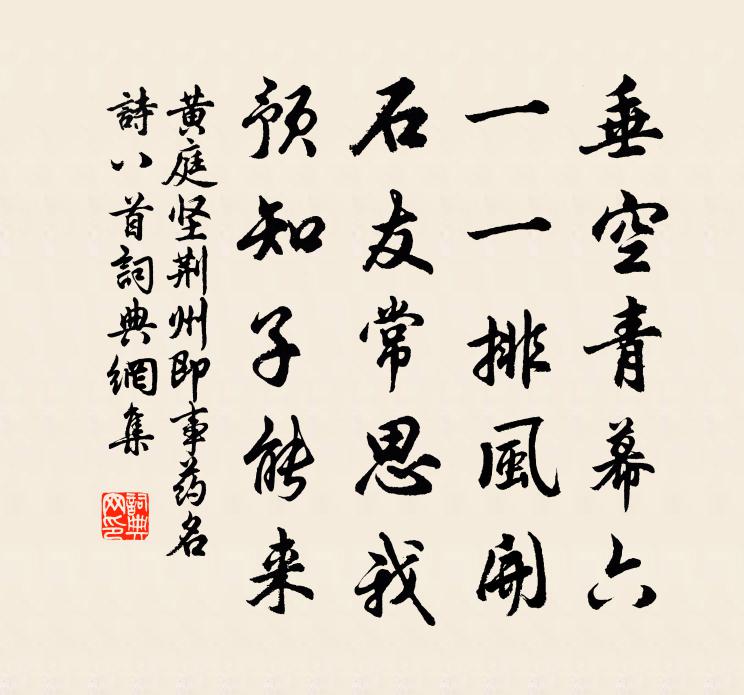 垂空青幕六
一一排風開
石友常思我
预知子能来
黄庭坚荆州即事药名
詩八首詞典網集
詞典網印